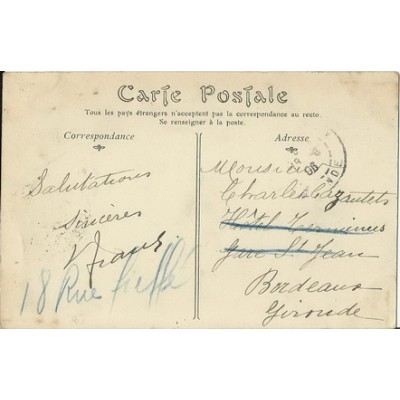 Carte Postale
Tous les pays étrangers n'acceptent pas la correspondance au recto
Se renseigner à la poste.
Correspondance
Adresse
Salutations
sincères
18 Rue
Monsieur
Charles Cazautets
Hôtel Terminus
Gare St Jean
Bordeaux
Gironde